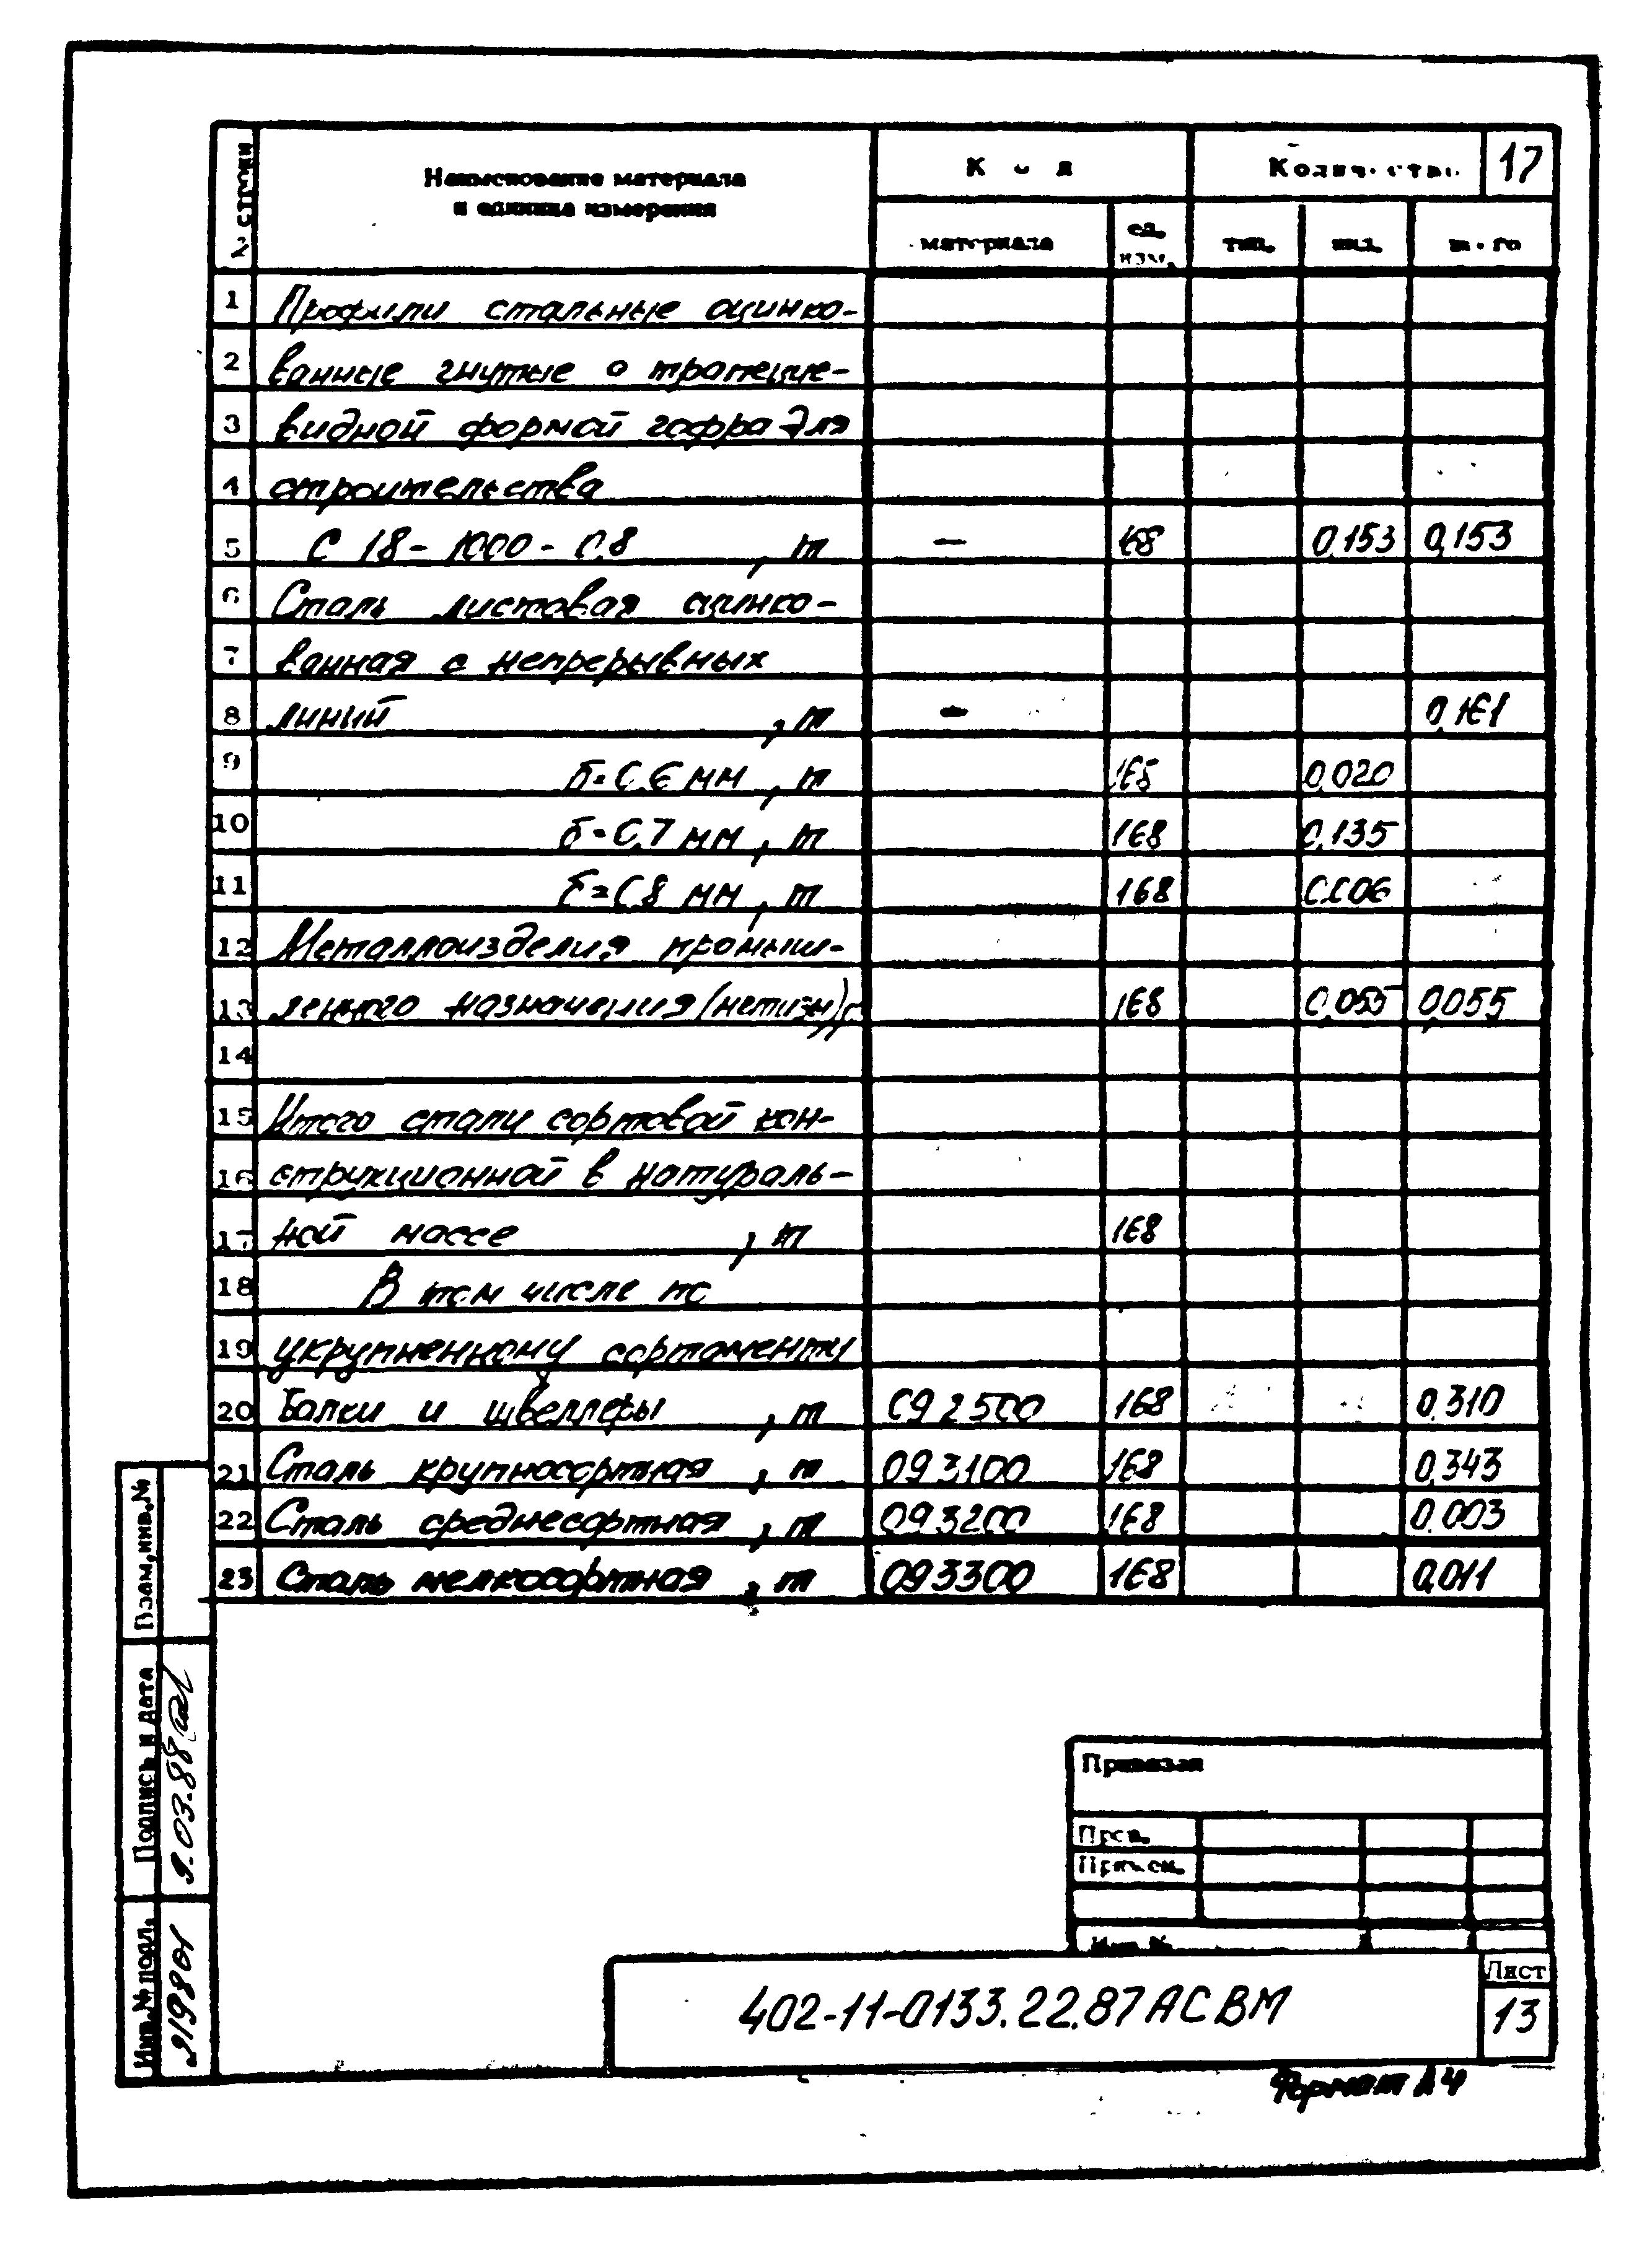 № строки
Наименование материала и единица измерения
Код
Количество
17
материала
ед. изм.
тип.
инд.
итого
1 Профили стальные оцинко-
2 ванные гнутые с трапецие-
3 видной формой гофра для
4 строительства
5 С 18-1000-0,8 , т - 168 0,153 0,153
6 Сталь листовая оцинко-
7 ванная с непрерывных
8 линий , т - 0,161
9 б=0,6 мм , т 168 0,020
10 б=0,7 мм , т 168 0,135
11 б=0,8 мм , т 168 0,006
12 Металлоизделия промыш-
13 ленного назначения (метизы), т 168 0,055 0,055
14
15 Итого стали сортовой кон-
16 струкционной в натураль-
17 ной массе , т 168
18 В том числе по
19 укрупненному сортаменту
20 Балки и швеллеры , т 092500 168 0,310
21 Сталь крупносортная , т 093100 168 0,343
22 Сталь среднесортная , т 093200 168 0.003
23 Сталь мелкосортная , т 093300 168 0,011
Взам.инв.№
Подпись и дата
9.03.88
Инв.№ подл.
21980
Привязан
Инв.№
402-11-0133.22.87 АС ВМ
Лист
13
Формат А4